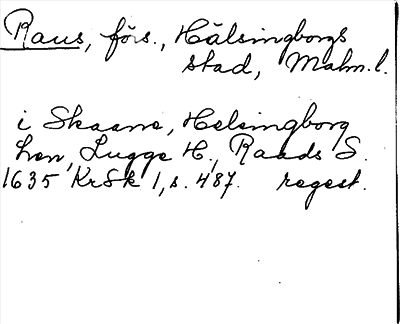 Raus, förs., Hälsingborgs
stad, Malm. l.
i Skaane, Helsingborg
Len, Lugge H., Raads S.
1635 KrSk 1, s. 487. regest.